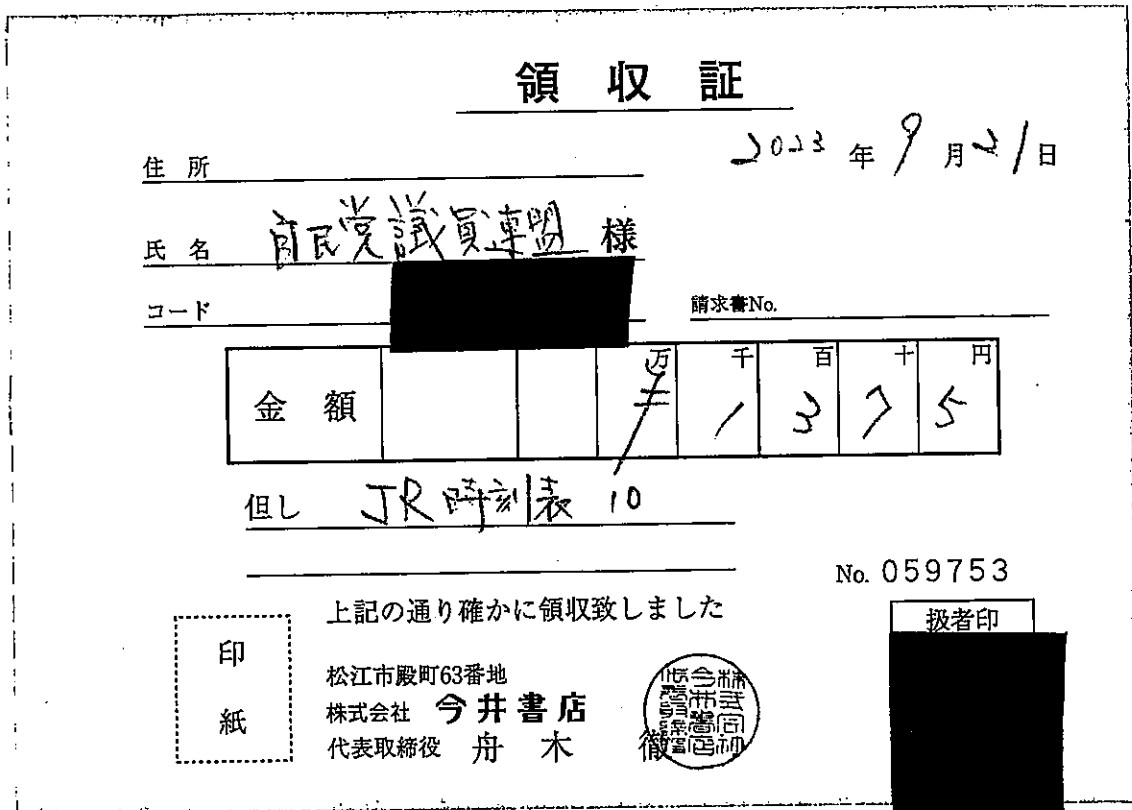 領収証
2023年9月21日
住所
氏名 自民党議員連盟 様
コード
請求書No.
金額 万 千 百 十 円
¥ 1 3 7 5
但し JR時刻表 10
No. 059753
上記の通り確かに領収致しました
扱者印
印紙
松江市殿町63番地
株式会社 今井書店
代表取締役 舟木 徹